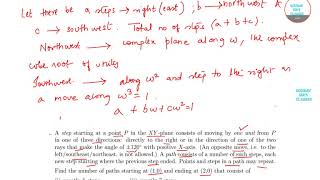 Let there be a steps → right (east) ; b → northwest &
c → southwest. Total no of steps (a + b + c).
Northwest → complex plane along ω, the complex
cube root of unity
Southwest → along ω² and step to the right as
a move along ω³ = 1.
a + bω + cω² = 1
. A step starting at a point P in the XY-plane consists of moving by one unit from P
in one of three directions: directly to the right or in the direction of one of the two
rays that make the angle of ±120° with positive X-axis. (An opposite move, i.e. to the
left/southeast/northeast, is not allowed.) A path consists of a number of such steps, each
new step starting where the previous step ended. Points and steps in a path may repeat.
Find the number of paths starting at (1,0) and ending at (2,0) that consist of